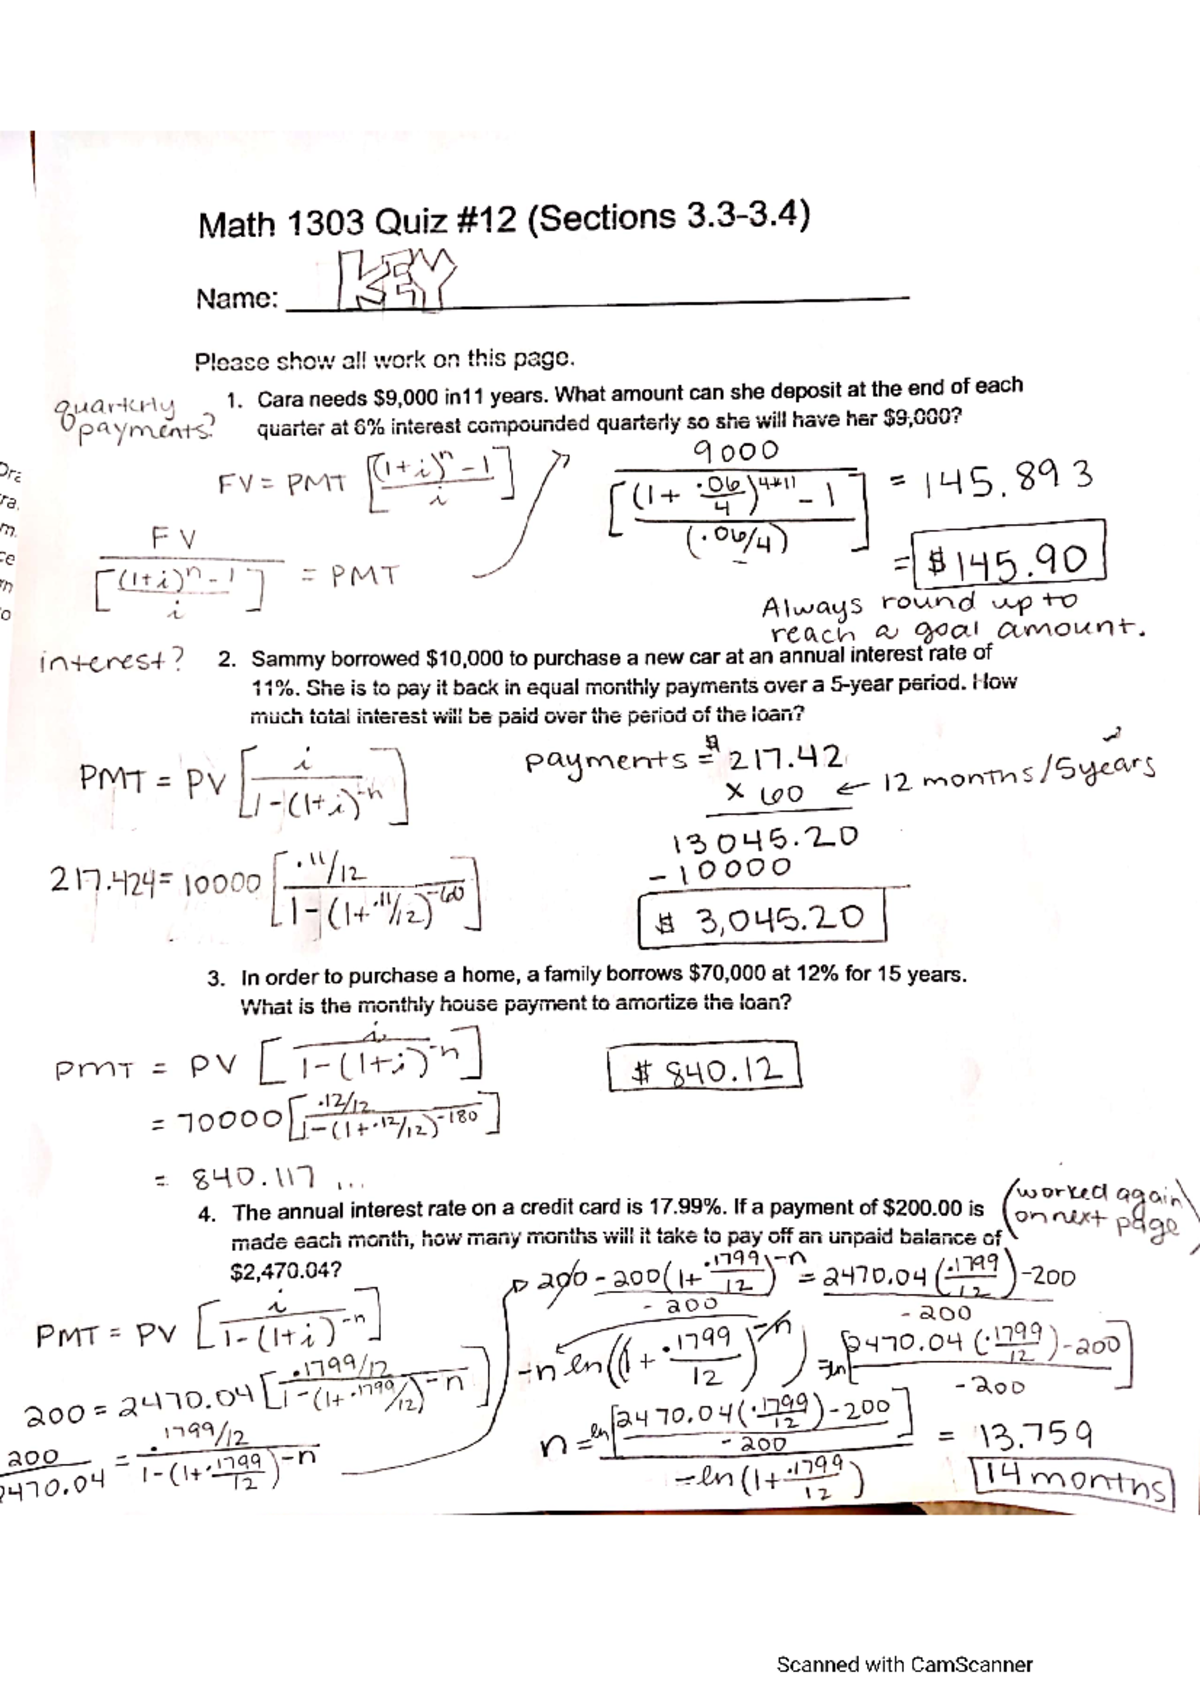 Math 1303 Quiz #12 (Sections 3.3-3.4)
Name: KEY
Please show all work on this page.
quarterly payments?
1. Cara needs $9,000 in11 years. What amount can she deposit at the end of each
quarter at 6% interest compounded quarterly so she will have her $9,000?
FV = PMT [((1+i)^n - 1)/i]
FV/[((1+i)^n - 1)/i] = PMT
9000/[((1+ .06/4)^4*11 - 1)/(.06/4)] = 145.893
= $145.90
Always round up to
reach a goal amount.
interest?
2. Sammy borrowed $10,000 to purchase a new car at an annual interest rate of
11%. She is to pay it back in equal monthly payments over a 5-year period. How
much total interest will be paid over the period of the loan?
PMT = PV [i/(1-(1+i)^-n)]
217.424 = 10000 [(.11/12)/(1-(1+.11/12)^-60)]
payments = $217.42
x 60 ← 12 months/5years
13045.20
-10000
$ 3,045.20
3. In order to purchase a home, a family borrows $70,000 at 12% for 15 years.
What is the monthly house payment to amortize the loan?
PMT = PV [i/(1-(1+i)^-n)]
= 70000 [(.12/12)/(1-(1+.12/12)^-180)]
= 840.117 ...
$ 840.12
4. The annual interest rate on a credit card is 17.99%. If a payment of $200.00 is
made each month, how many months will it take to pay off an unpaid balance of
$2,470.04?
(worked again
on next page)
PMT = PV [i/(1-(1+i)^-n)]
200 = 2470.04 [(.1799/12)/(1-(1+.1799/12)^-n)]
200/2470.04 = (.1799/12)/(1-(1+.1799/12)^-n)
200 - 200(1+ .1799/12)^-n = 2470.04 (.1799/12) - 200
-200 -200
-n ln((1+ .1799/12)^-n) = ln[(2470.04 (.1799/12) - 200)/-200]
n = ln[(2470.04(.1799/12) - 200)/-200]/-ln(1+ .1799/12) = 13.759
14 months
Scanned with CamScanner